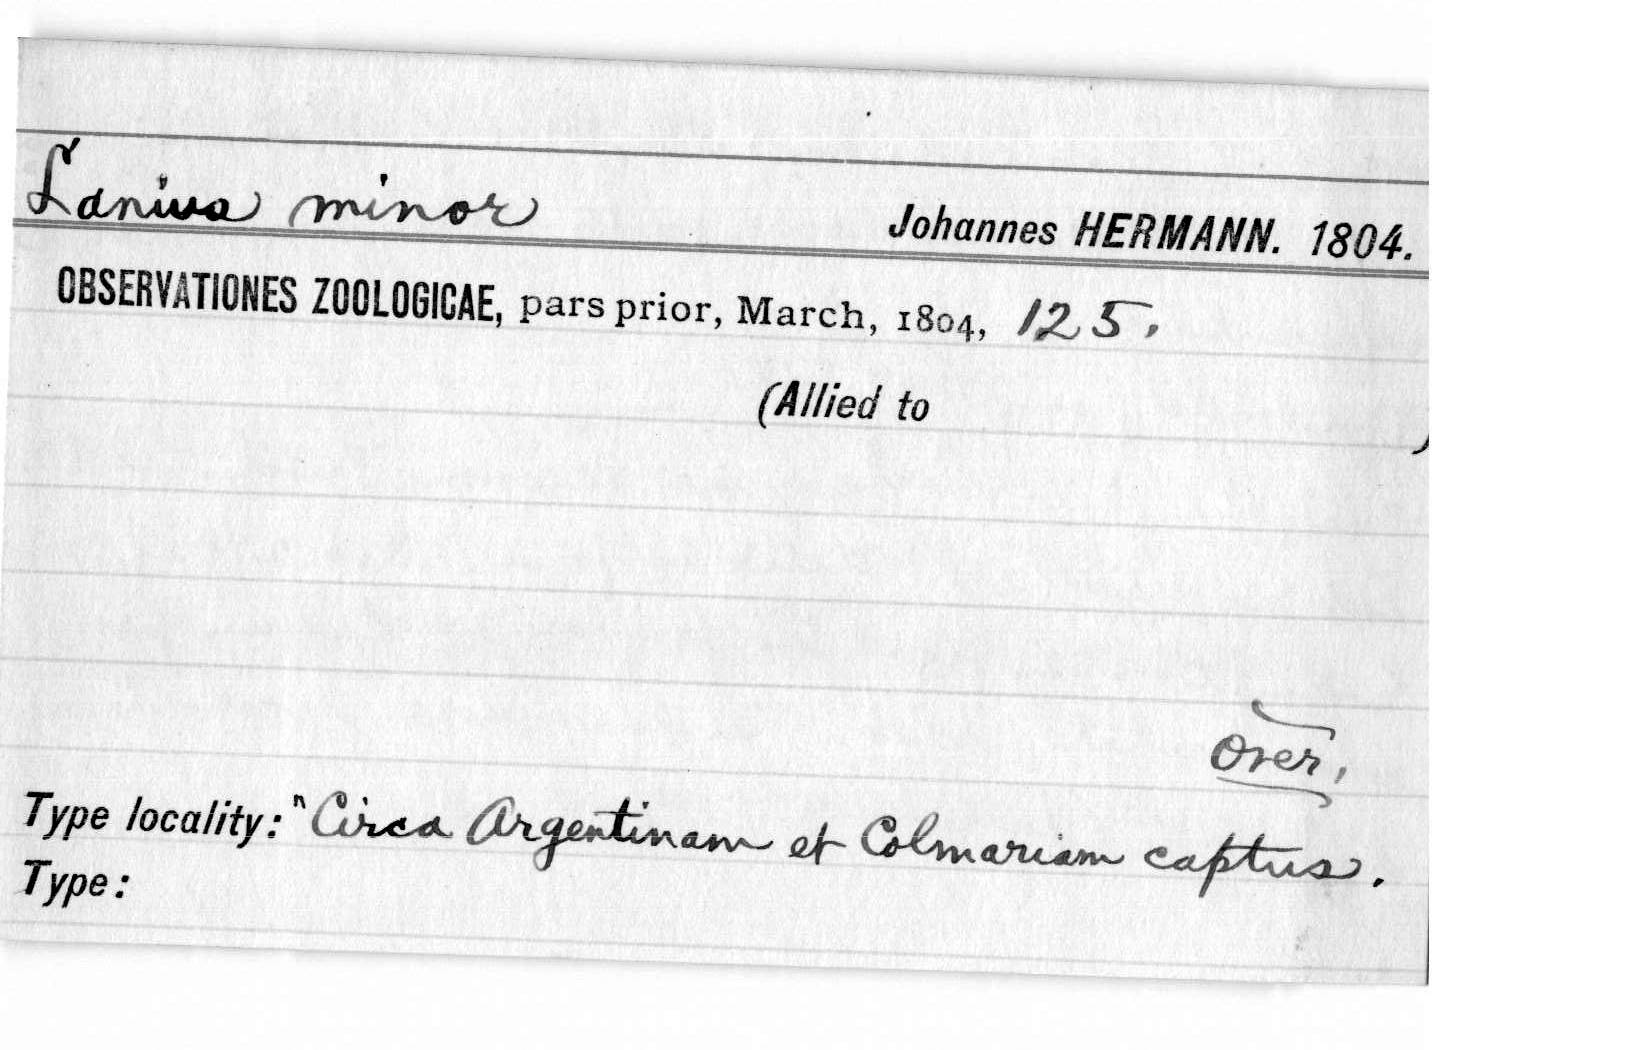 Lanius minor Johannes HERMANN. 1804.
OBSERVATIONES ZOOLOGICAE, pars prior, March, 1804, 125.
(Allied to )
Over,
Type locality: "Circa Argentinam et Colmariam captus.
Type: